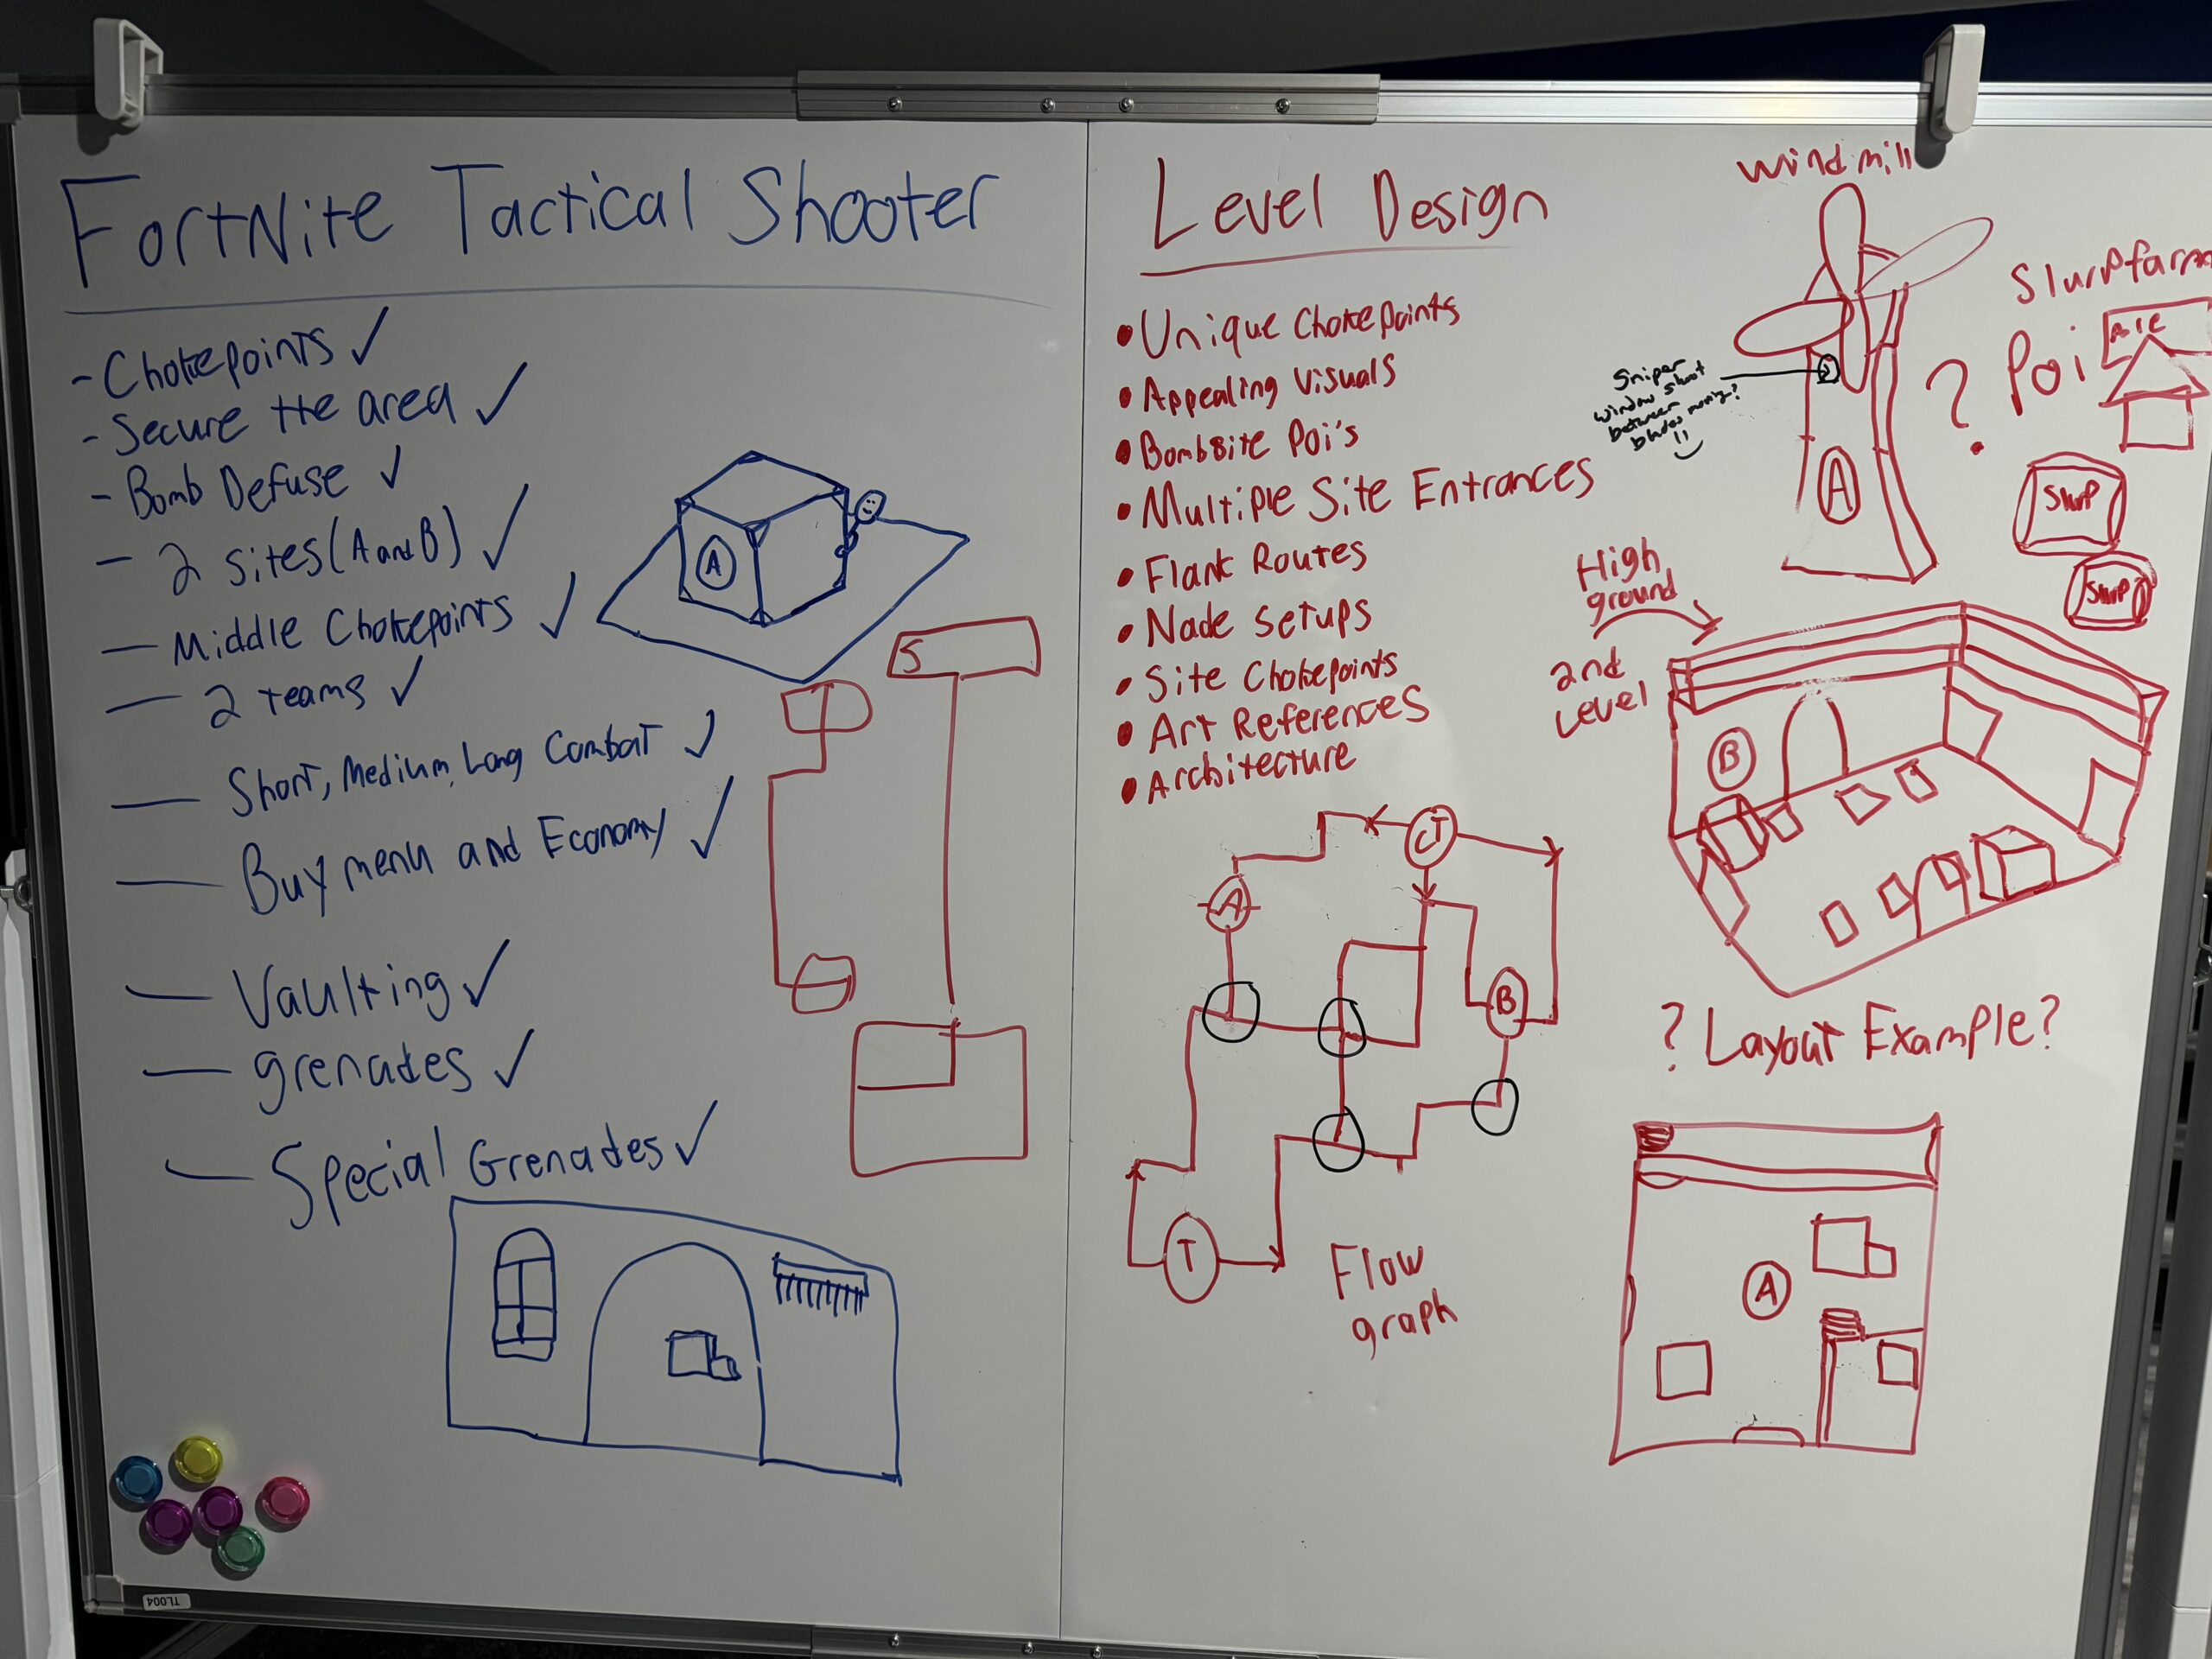 FortNite Tactical Shooter
- Chokepoints ✓
- Secure the area ✓
- Bomb Defuse ✓
- 2 sites (A and B) ✓
- Middle Chokepoints ✓
- 2 teams ✓
- Short, Medium, Long Combat ✓
- Buy menu and Economy ✓
- Vaulting ✓
- grenades ✓
- Special Grenades ✓
A
S
TL004
Level Design
• Unique Chokepoints
• Appealing Visuals
• Bombsite Poi's
• Multiple Site Entrances
• Flank Routes
• Nade Setups
• Site Chokepoints
• Art References
• Architecture
CT
A
B
T
Flow
graph
Windmill
Sniper
window shoot
between
blades
A
Slurpfarm
? Poi
Slurp
Slurp
High
ground
2nd
Level
B
? Layout Example?
A